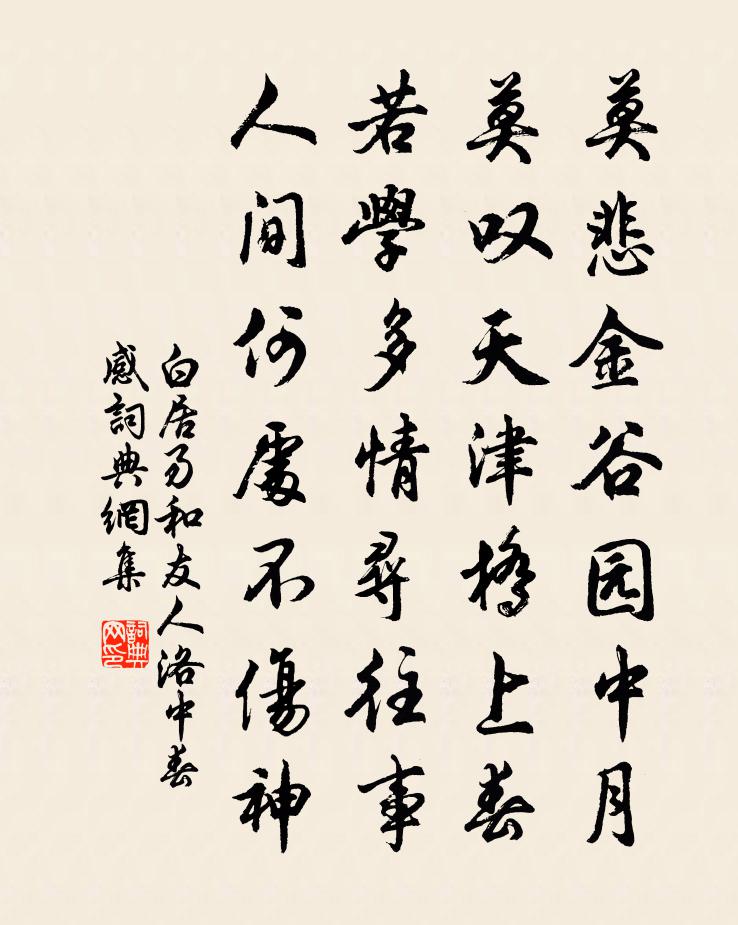 莫悲金谷园中月
莫叹天津橋上春
若學多情尋往事
人间何處不傷神
白居易和友人洛中春
感詞典網集
詞典
网印